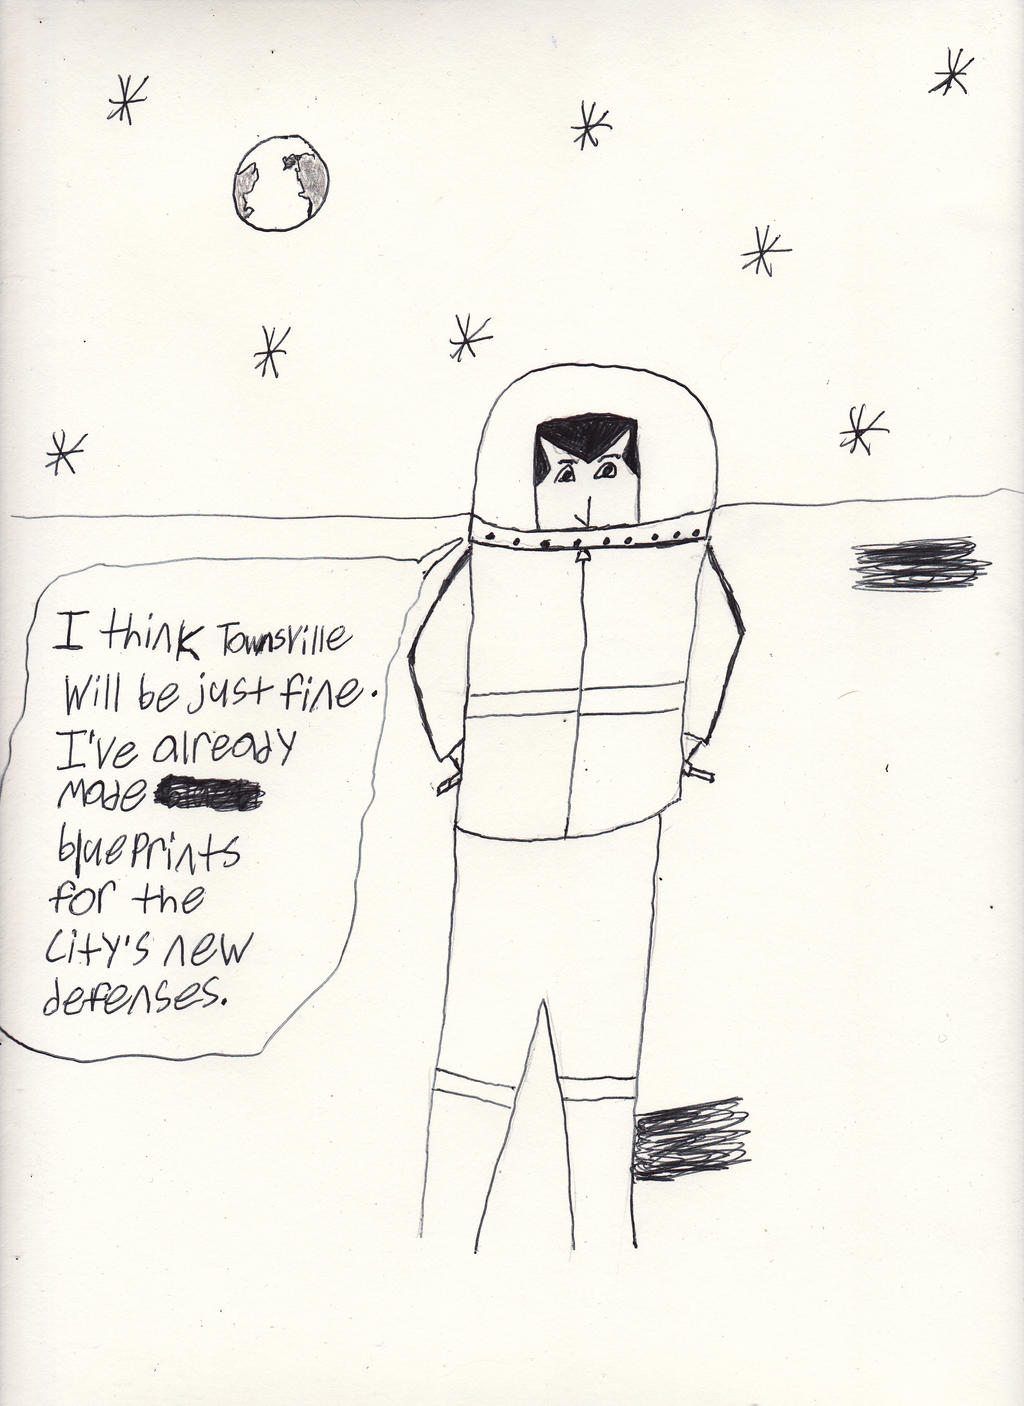 I think Townsville
will be just fine.
I've already
made
blueprints
for the
city's new
defenses.